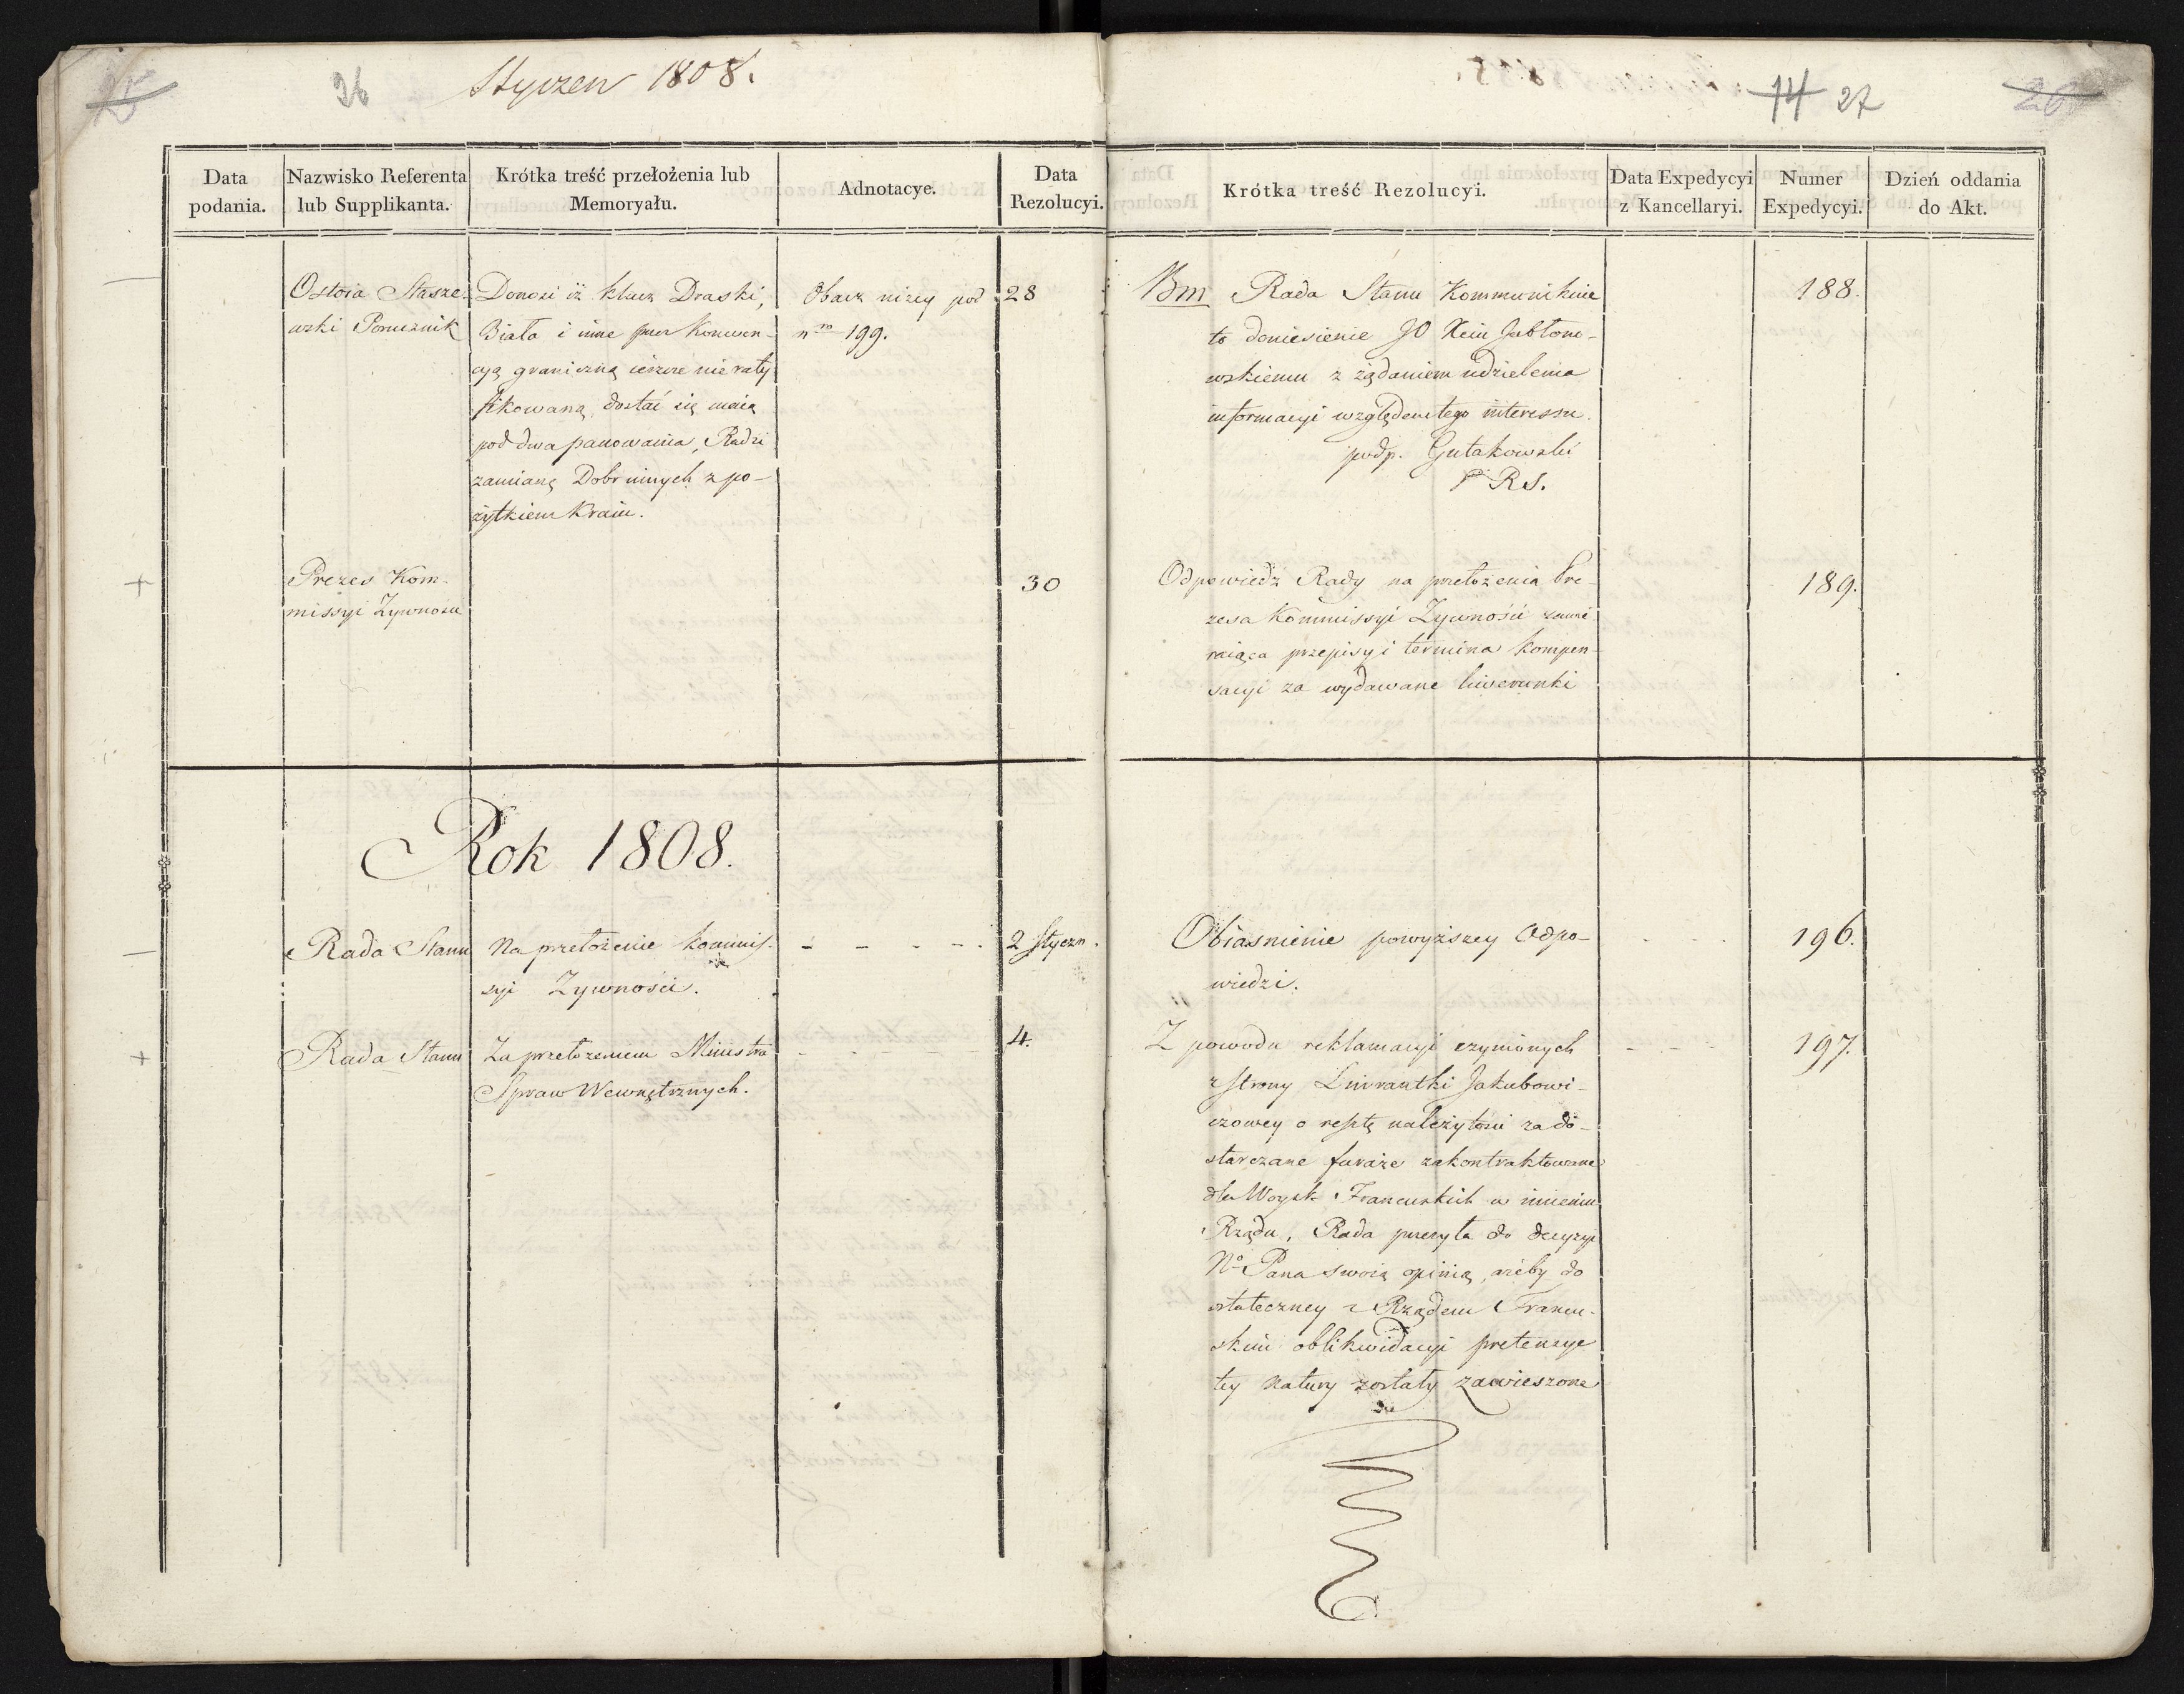 25
26
Styczen 1808.
14 27
26
Data
podania.
Nazwisko Referenta
lub Supplikanta.
Krótka treść przełożenia lub
Memoryału.
Adnotacye.
Data
Rezolucyi.
Krótka treść Rezolucyi.
Data Expedycyi
z Kancellaryi.
Numer
Expedycyi.
Dzień oddania
do Akt.
Ostoia Stasze-
wski Porucznik
Donosi iż klucz Draski,
Biała i inne przez Konwen-
cyą graniczną ieszcze nie raty-
fikowaną, dostać się maią
pod dwa panowania, Radzi
zamianę Dobr innych z po-
żytkiem Kraiu.
Obacz niżey pod
nrm 199.
28
Bm Rada Stanu Kommunikuie
to doniesienie JO Xciu Jabłono-
wskiemu z żądaniem udzielenia
informacyi względem tego interessu.
podp. Gutakowski
P RS.
188.
Prezes Kom-
missyi Żywności
30
Odpowiedź Rady na przełożenia Pre-
zesa Kommissyi Żywności zawie-
raiąca przepisy i termina kompen-
sacyi za wydawane liwerunki
189.
Rok 1808.
Rada Stanu
Na przełożenie Kommis-
syi Żywności.
2 Styczn.
Obiasnienie powyższey Odpo-
wiedzi.
196.
Rada Stanu
Za przełożeniem Ministra
Spraw Wewnętrznych.
4.
Z powodu reklamacyi czynionych
z strony Liwrantki Jakubowi-
czowey o resztę należytości za do-
starczane furaże zakontraktowane
dla Woysk Francuzkich w imieniu
Rządu, Rada przesyła do decyzyi
No Pana swoią opinią, ażeby do
ostateczney z Rządem Francu-
skim oblikwidacyi pretensye
tey natury zostały zawieszone
197.